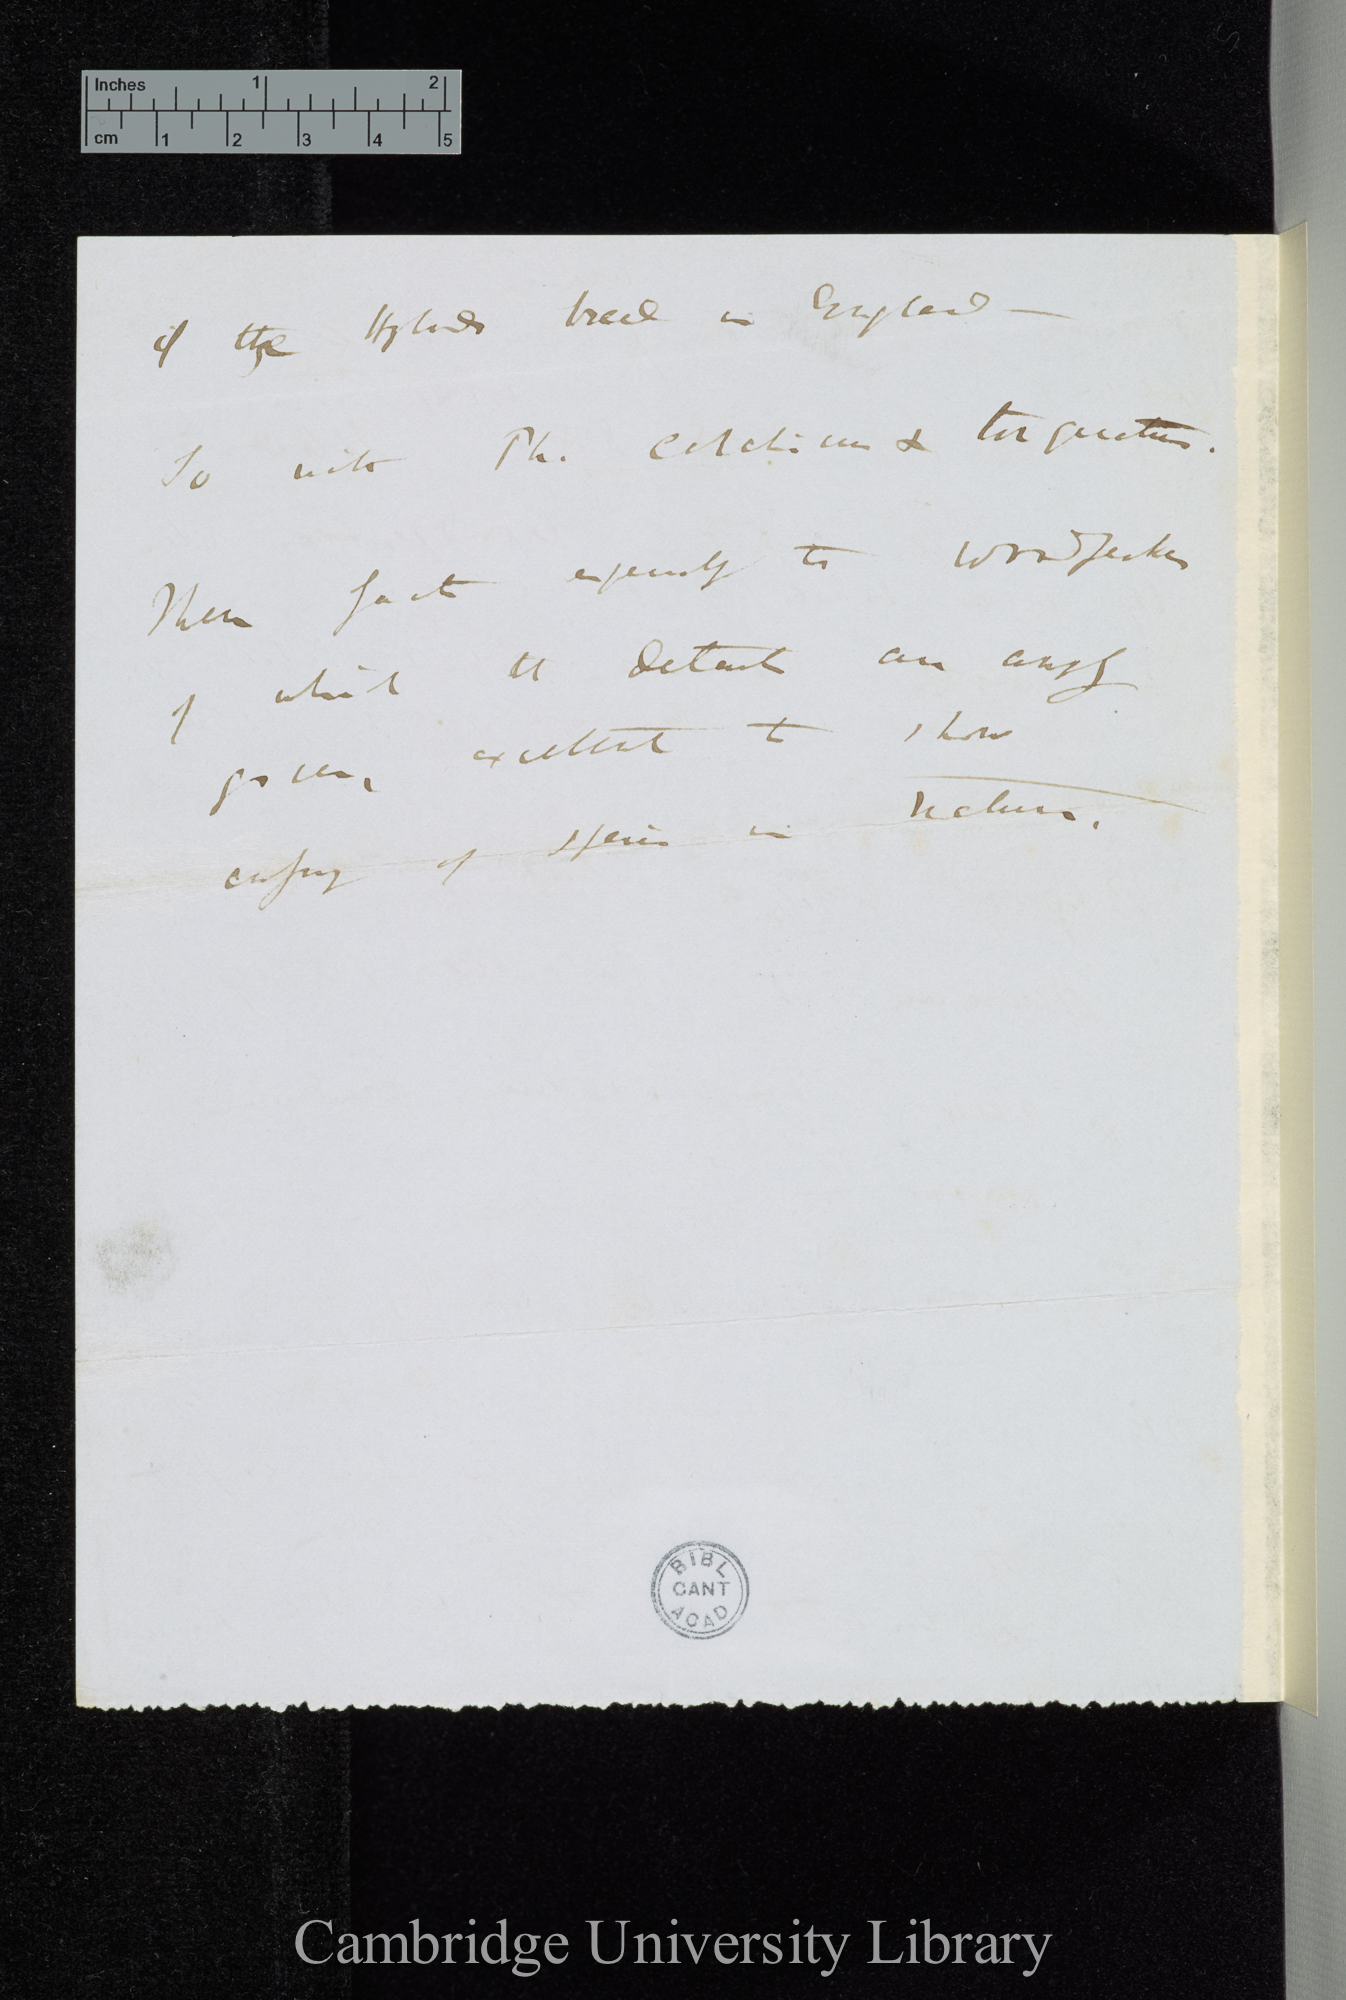 Inches 1 2
cm 1 2 3 4 5
if the Hybrids breed in England —
So with Ph. Colchicus & torquatus.
These facts especially to Woodpecker
of which the details are amply
given, excellent to show
crossing of species in Nature.
BIBL
CANT
ACAD
Cambridge University Library